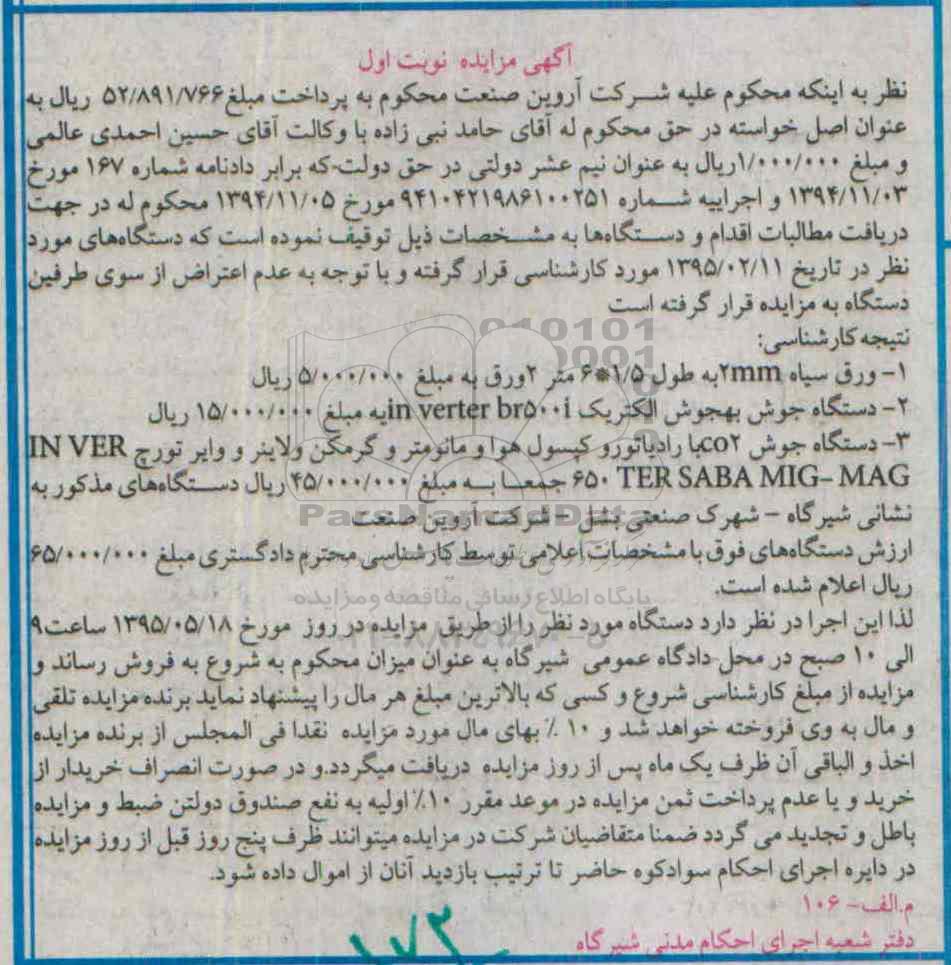 آگهی مزایده نوبت اول
نظر به اینکه محکوم علیه شرکت آروین صنعت محکوم به پرداخت مبلغ ۵۲/۸۹۱/۷۶۶ ریال به
عنوان اصل خواسته در حق محکوم له آقای حامد نبی زاده با وکالت آقای حسین احمدی عالمی
و مبلغ ۱/۰۰۰/۰۰۰ریال به عنوان نیم عشر دولتی در حق دولت-که برابر دادنامه شماره ۱۶۷ مورخ
۱۳۹۴/۱۱/۰۳ و اجراییه شماره ۹۴۱۰۴۲۱۹۸۶۱۰۰۲۵۱ مورخ ۱۳۹۴/۱۱/۰۵ محکوم له در جهت
دریافت مطالبات اقدام و دستگاه‌ها به مشخصات ذیل توقیف نموده است که دستگاه‌های مورد
نظر در تاریخ ۱۳۹۵/۰۲/۱۱ مورد کارشناسی قرار گرفته و با توجه به عدم اعتراض از سوی طرفین
دستگاه به مزایده قرار گرفته است
نتیجه کارشناسی:
۱- ورق سیاه ۲mmبه طول ۱/۵*۶ متر ۲ورق به مبلغ ۵/۰۰۰/۰۰۰ ریال
۲- دستگاه جوش بهجوش الکتریک in verter br۵۰۰iبه مبلغ ۱۵/۰۰۰/۰۰۰ ریال
۳- دستگاه جوش co۲با رادیاتورو کپسول هوا و مانومتر و گرمکن ولاینر و وایر تورچ IN VER
TER SABA MIG- MAG ۶۵۰ جمعا به مبلغ ۴۵/۰۰۰/۰۰۰ ریال دستگاه‌های مذکور به
نشانی شیرگاه - شهرک صنعتی بشل - شرکت آروین صنعت
ارزش دستگاه‌های فوق با مشخصات اعلامی توسط کارشناسی محترم دادگستری مبلغ ۶۵/۰۰۰/۰۰۰
ریال اعلام شده است.
لذا این اجرا در نظر دارد دستگاه مورد نظر را از طریق مزایده در روز مورخ ۱۳۹۵/۰۵/۱۸ ساعت۹
الی ۱۰ صبح در محل دادگاه عمومی شیرگاه به عنوان میزان محکوم به شروع به فروش رساند و
مزایده از مبلغ کارشناسی شروع و کسی که بالاترین مبلغ هر مال را پیشنهاد نماید برنده مزایده تلقی
و مال به وی فروخته خواهد شد و ۱۰ ٪ بهای مال مورد مزایده نقدا فی المجلس از برنده مزایده
اخذ و الباقی آن ظرف یک ماه پس از روز مزایده دریافت میگردد.و در صورت انصراف خریدار از
خرید و یا عدم پرداخت ثمن مزایده در موعد مقرر ۱۰٪ اولیه به نفع صندوق دولتن ضبط و مزایده
باطل و تجدید می گردد ضمنا متقاضیان شرکت در مزایده میتوانند ظرف پنج روز قبل از روز مزایده
در دایره اجرای احکام سوادکوه حاضر تا ترتیب بازدید آنان از اموال داده شود.
م.الف- ۱۰۶
دفتر شعبه اجرای احکام مدنی شیرگاه
۱۷۳
ParsNamadData
پایگاه اطلاع رسانی مناقصه و مزایده